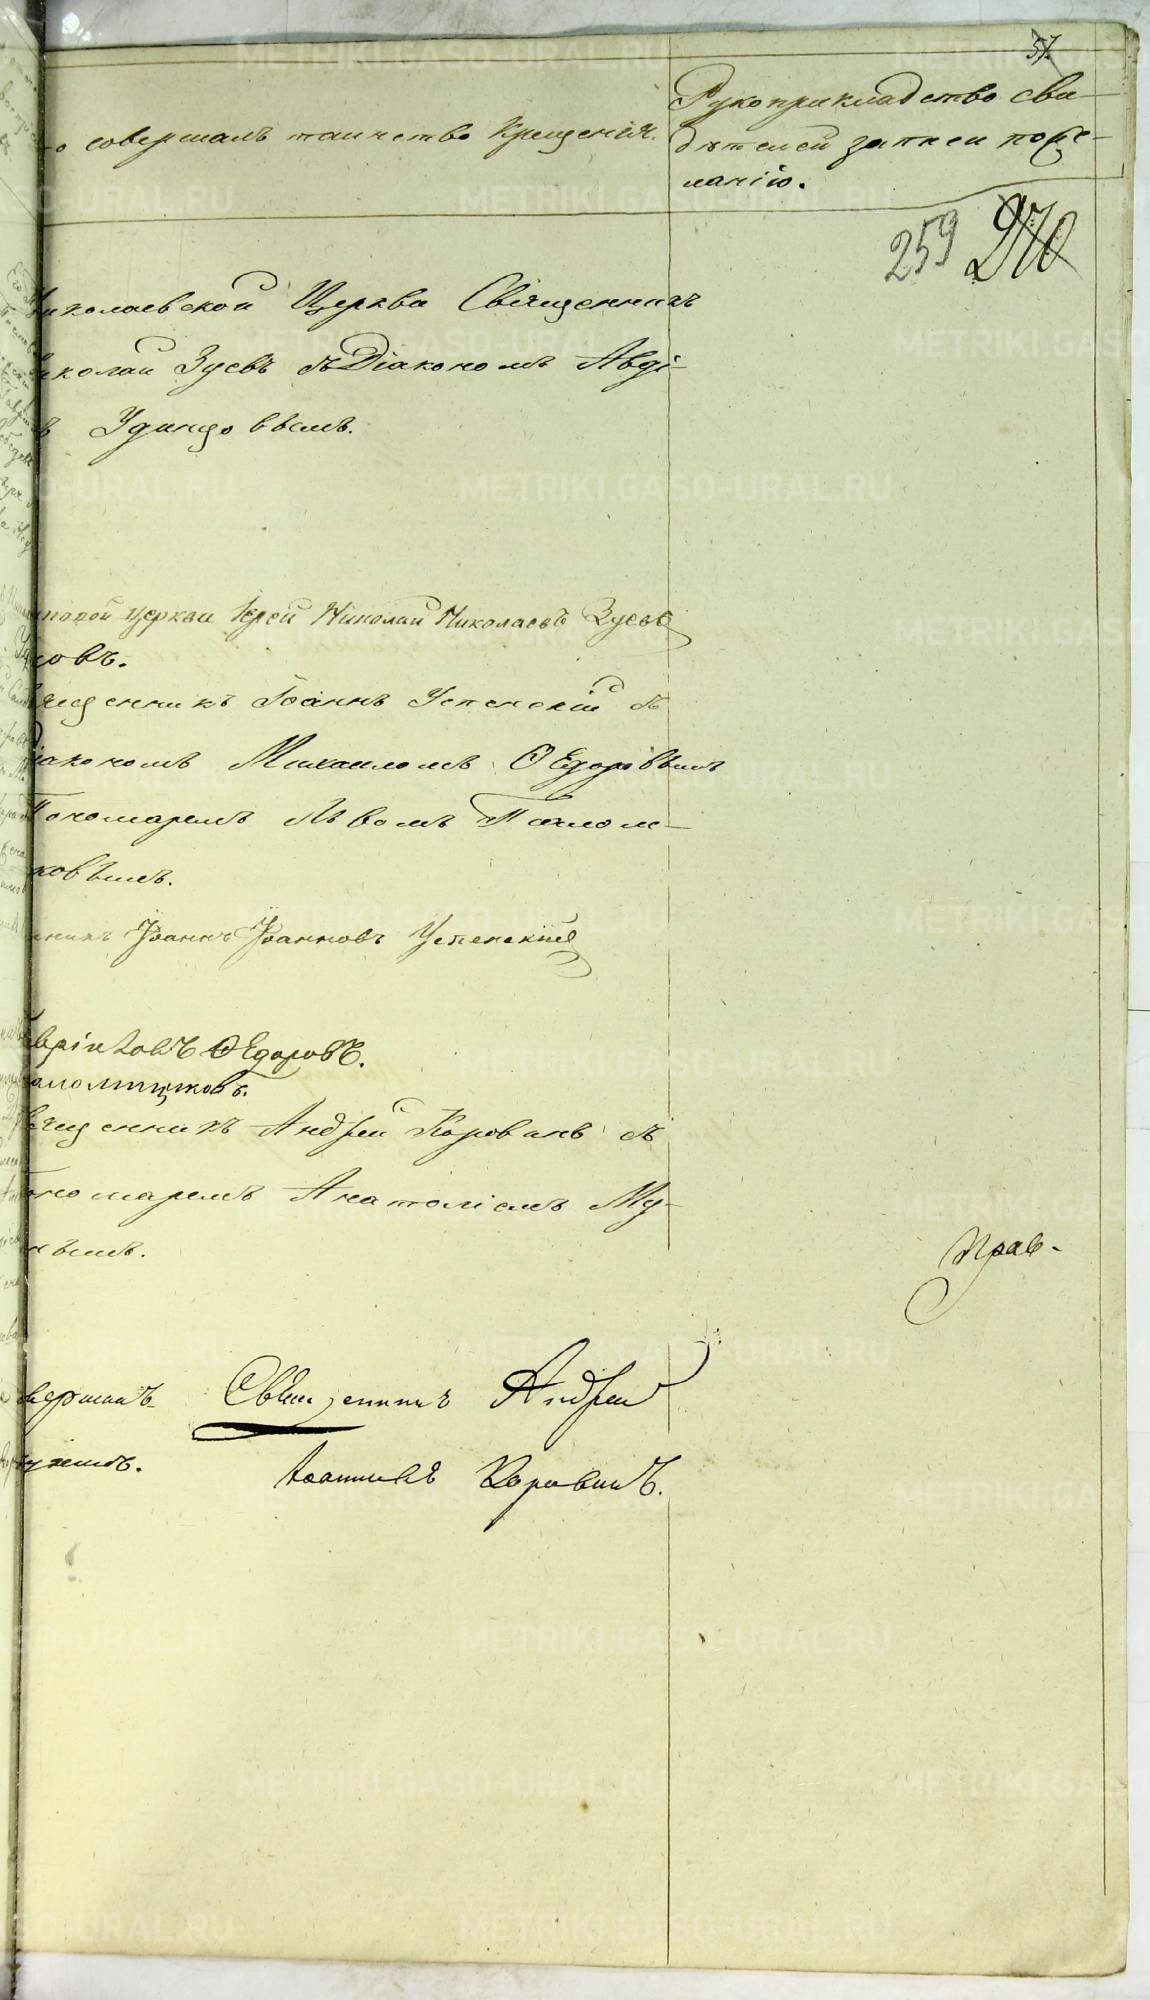 57.
-о совершалъ таинство Крещенія.
Рукоприкладство сви-
дѣтелей записи по же-
ланію.
259 270
иколаевской Церкви Священникъ
иколай Зуевъ съ Діакономъ Авді-
Удинцовымъ.
церкви Іерей Николай Николаевъ Зуевъ
ковъ.
ященникъ Іоаннъ Успенскій съ
іакономъ Михаиломъ Ѳедоровымъ
Пономаремъ Львомъ Пахлом-
ковымъ.
нникъ Іоаннъ Іоанновъ Успенскій
Ѳедоровъ.
ященникъ Андрей Коровинъ съ
ономаремъ Анатоліемъ Му-
нымъ.
Прав-
вершалъ Священникъ Андрей
Іоанновъ Коровинъ.
METRIKI.GASO-URAL.RU